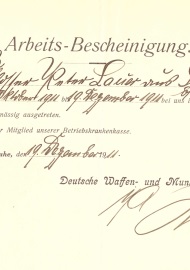 Arbeits-Bescheinigung.
Peter Lauer aus
1911 19. Dezember 1911 bei uns
mässig ausgetreten.
r Mitglied unserer Betriebskrankenkasse.
uhe, den 19. Dezember 11.
Deutsche Waffen- und Mun